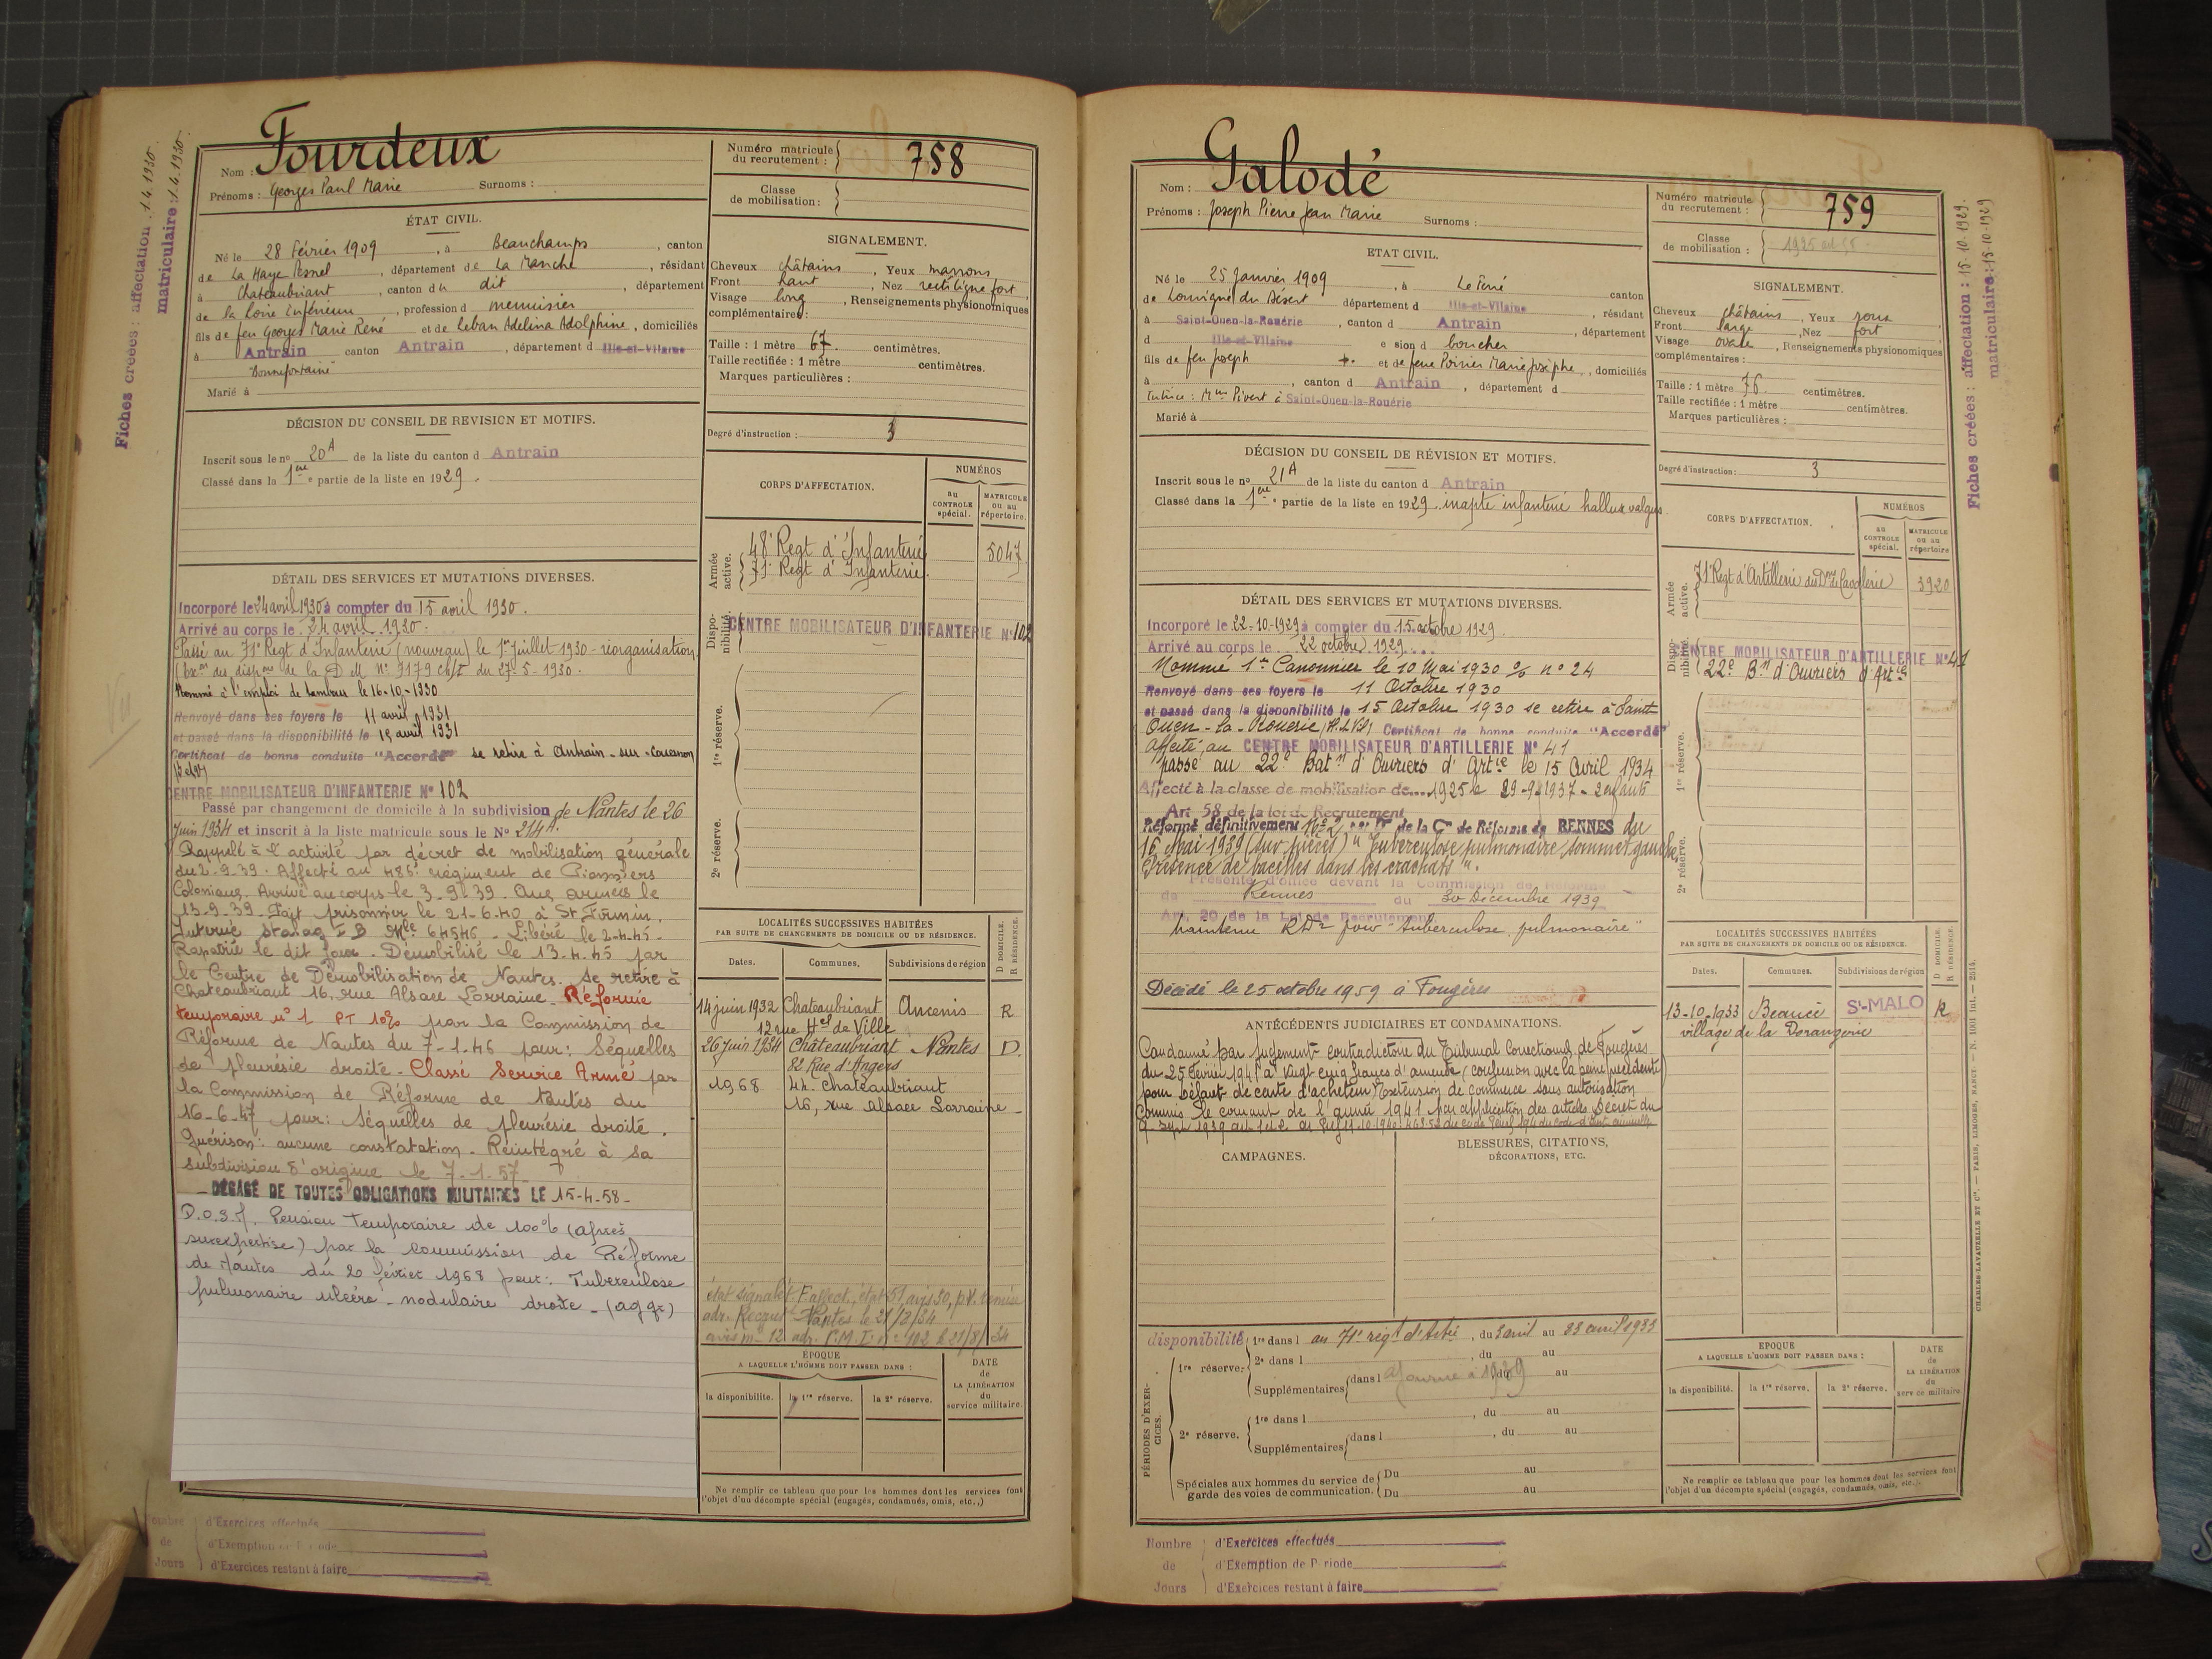 Fiches créées : affectation : 1.4.1930.
matriculaire : 1.4.1930.
Nom : Fourdeux
Prénoms : Georges Paul Marie Surnoms :
ÉTAT CIVIL.
Né le 28 Février 1909, à Beauchamps, canton
de La Haye Pesnel, département de La Manche, résidant
à Chateaubriant, canton du dit, département
de la Loire Inférieure, profession d menuisier
fils de feu Georges Marie René et de Leban Adelina Adolphine, domiciliés
à Antrain canton Antrain, département d Ille-et-Vilaine
"Bonnefontaine"
Marié à
DÉCISION DU CONSEIL DE REVISION ET MOTIFS.
Inscrit sous le no 20A de la liste du canton d Antrain
Classé dans la 1ère partie de la liste en 1929.
DÉTAIL DES SERVICES ET MUTATIONS DIVERSES.
Incorporé le 24 avril 1930 à compter du 15 avril 1930.
Arrivé au corps le 24 avril 1930.
Passé au 71e Regt d'Infanterie (nouveau) le 1er Juillet 1930 - réorganisation
du 27.5.1930.
Nommé à l'emploi de tambour le 16-10-1930
Renvoyé dans ses foyers le 11 avril 1931
et passé dans la disponibilité le 15 avril 1931
Certificat de bonne conduite "Accordé" se retire à Antrain-sur-Couesnon
CENTRE MOBILISATEUR D'INFANTERIE No 102
Passé par changement de domicile à la subdivision de Nantes le 26
Juin 1934 et inscrit à la liste matricule sous le No 214A.
Rappelé à l'activité par décret de mobilisation générale
du 2-9-39. Affecté au 486e régiment de Pionniers
Coloniaux. Arrivé au corps le 3-9-39. Aux armées le
13-9-39. Fait prisonnier le 21-6-40 à St Firmin.
Interné Stalag I B Mle 64546 - Libéré le 2-4-45 -
Rapatrié le dit jour. Démobilisé le 13-4-45 par
le Centre de Démobilisation de Nantes. Se retire à
Chateaubriant 16, rue Alsace Lorraine. Réformé
temporaire no 1 PT 10% par la Commission de
Réforme de Nantes du 7-1-46 pour : Séquelles
de pleurésie droite. Classé Service Armé par
la Commission de Réforme de Nantes du
16-6-47 pour : Séquelles de pleurésie droite.
Guérison : aucune constatation. Réintégré à sa
subdivision d'origine le 7-1-57
DÉGAGÉ DE TOUTES OBLIGATIONS MILITAIRES LE 15-4-58 -
Pension temporaire de 100% (après
surexpertise) par la commission de Réforme
de Nantes du 20 février 1968 pour : Tuberculose
pulmonaire ulcéro-nodulaire droite - (aggr)
Nombre de Jours
d'Exercices effectués
d'Exemption de Période
d'Exercices restant à faire
Numéro matricule du recrutement : 758
Classe de mobilisation :
SIGNALEMENT.
Cheveux châtains, Yeux marrons
Front haut, Nez rectiligne fort
Visage long, Renseignements physionomiques
complémentaires :
Taille : 1 mètre 67 centimètres.
Taille rectifiée : 1 mètre centimètres.
Marques particulières :
Degré d'instruction : 3
CORPS D'AFFECTATION.
NUMÉROS
au CONTROLE spécial.
MATRICULE ou au répertoire.
Armée active.
48e Regt d'Infanterie 5047
71e Regt d'Infanterie.
Disponibilité.
CENTRE MOBILISATEUR D'INFANTERIE No 102
1re réserve.
2e réserve.
LOCALITÉS SUCCESSIVES HABITÉES
PAR SUITE DE CHANGEMENTS DE DOMICILE OU DE RÉSIDENCE.
D DOMICILE. R RÉSIDENCE.
Dates. Communes. Subdivisions de région
14 juin 1932 Chateaubriant Ancenis R
12 rue Hel de Ville
26 Juin 1934 Châteaubriant Nantes D.
82 Rue d'Angers
1968 44. Chateaubriant
16, rue Alsace Lorraine -
adr. Recrut Nantes le 21/8/34
avis m- 12 adr. C.M.I. no 102 le 21/8/34
ÉPOQUE
A LAQUELLE L'HOMME DOIT PASSER DANS :
DATE de LA LIBÉRATION du service militaire.
la disponibilité. la 1re réserve. la 2e réserve.
Ne remplir ce tableau que pour les hommes dont les services font
l'objet d'un décompte spécial (engagés, condamnés, omis, etc.,)
Nom : Galodé
Prénoms : Joseph Pierre Jean Marie Surnoms :
ETAT CIVIL.
Né le 25 Janvier 1909, à Le Ferré canton
de Louvigné du Désert département d Ille-et-Vilaine, résidant
à Saint-Ouen-la-Rouërie, canton d Antrain, département
d Ille-et-Vilaine e sion d boucher
fils de feu Joseph et de feue Poirier Marie Josèphe, domiciliés
à , canton d Antrain, département d
tutrice : Mme Pivert à Saint-Ouen-la-Rouërie
Marié à
DÉCISION DU CONSEIL DE RÉVISION ET MOTIFS.
Inscrit sous le no 21A de la liste du canton d Antrain
Classé dans la 1ère partie de la liste en 1929. inapte infanterie hallux valgus
DÉTAIL DES SERVICES ET MUTATIONS DIVERSES.
Incorporé le 22-10-1929 à compter du 15 octobre 1929.
Arrivé au corps le 22 octobre 1929.
Nommé 1er Canonnier le 10 Mai 1930 o/o no 24
Renvoyé dans ses foyers le 11 Octobre 1930
et passé dans la disponibilité le 15 Octobre 1930 se retire à Saint
Ouen-la-Rouerie (I.et.Vil.) Certificat de bonne conduite "Accordé"
Affecté au CENTRE MOBILISATEUR D'ARTILLERIE No 41
passé au 22e Batn d'Ouvriers d'Artie le 15 Avril 1934
Affecté à la classe de mobilisation de 1925 le 29-9-1937 - 2 enfants
Art 58 de la loi de Recrutement
Réformé définitivement No 2 par Don de la Con de Réforme de RENNES du
16 Mai 1939 (sur pièces) "Tuberculose pulmonaire sommet gauche,
Présence de bacilles dans les crachats".
Présenté d'office devant la Commission de Réforme
de Rennes du 30 Décembre 1939
Art. 20 de la Loi de Recrutement
Maintenu RD2 pour "tuberculose pulmonaire"
Décédé le 25 octobre 1959 à Fougères
ANTÉCÉDENTS JUDICIAIRES ET CONDAMNATIONS.
Condamné par jugement contradictoire du Tribunal Correctionnel de Fougères
du 25 Février 1941 à vingt cinq francs d'amende (confusion avec la peine précédente)
pour Défaut de carte d'acheteur, Extension de commerce sous autorisation
Commis le courant de l'année 1941 par application des articles Décret du
CAMPAGNES.
BLESSURES, CITATIONS,
DÉCORATIONS, ETC.
PÉRIODES D'EXERCICES.
disponibilité 1re dans l au 71e régt d'Artie, du 3 avril au 23 avril 1933
1re réserve. 2e dans l , du au
Supplémentaires dans l Ajourné à 1939 du au
2e réserve. 1re dans l , du au
Supplémentaires dans l , du au
Spéciales aux hommes du service de
garde des voies de communication.
Du au
Du au
Nombre de Jours
d'Exercices effectués
d'Exemption de Période
d'Exercices restant à faire
Numéro matricule du recrutement : 759
Classe de mobilisation : 1925
SIGNALEMENT.
Cheveux châtains, Yeux roux
Front large, Nez fort
Visage ovale, Renseignements physionomiques
complémentaires :
Taille : 1 mètre 76 centimètres.
Taille rectifiée : 1 mètre centimètres.
Marques particulières :
Degré d'instruction : 3
CORPS D'AFFECTATION.
NUMÉROS
au CONTROLE spécial.
MATRICULE ou au répertoire
Armée active.
71e Regt d'Artillerie du Don de Cavalerie 3920
Disponibilité.
CENTRE MOBILISATEUR D'ARTILLERIE No 41
22e Bn d'Ouvriers d'Artie
1re réserve.
2e réserve.
LOCALITÉS SUCCESSIVES HABITÉES
PAR SUITE DE CHANGEMENTS DE DOMICILE OU DE RÉSIDENCE.
D DOMICILE. R RÉSIDENCE.
Dates. Communes. Subdivisions de région
13-10-1933 Beaucé St-MALO R
village de la Dorangerie
EPOQUE
A LAQUELLE L'HOMME DOIT PASSER DANS :
DATE de LA LIBÉRATION du service militaire.
la disponibilité. la 1re réserve. la 2e réserve.
Ne remplir ce tableau que pour les hommes dont les services font
l'objet d'un décompte spécial (engagés, condamnés, omis, etc.).
Fiches créées : affectation : 15-10-1929.
matriculaire : 15-10-1929
CHARLES-LAVAUZELLE ET Cie. — PARIS, LIMOGES, NANCY